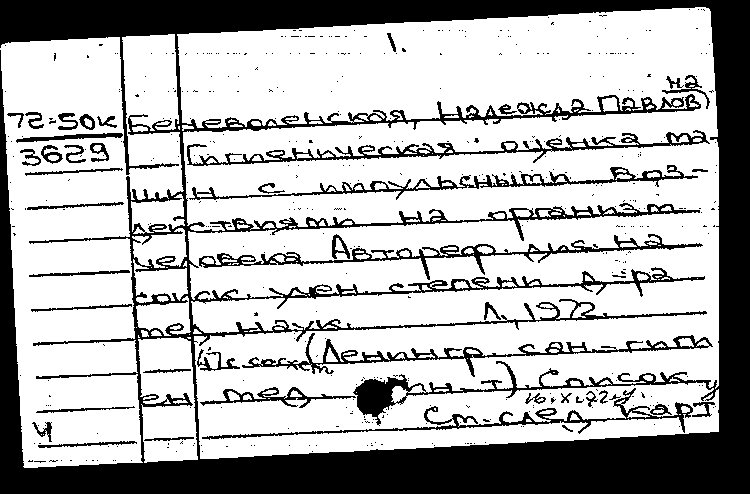 1.
на
72-50к Беневоленская, Надежда Павлов)
3629 Гигиеническая оценка ма-
шин с импульсными воз-
действиями на организм
человека Автореф. дис. на
соиск. учен. степени д-ра
мед. наук. Л., 1972.
47 с. (Ленингр. сан.-гиги
ен. мед. ин-т). Список
Ст. след. карт
ч